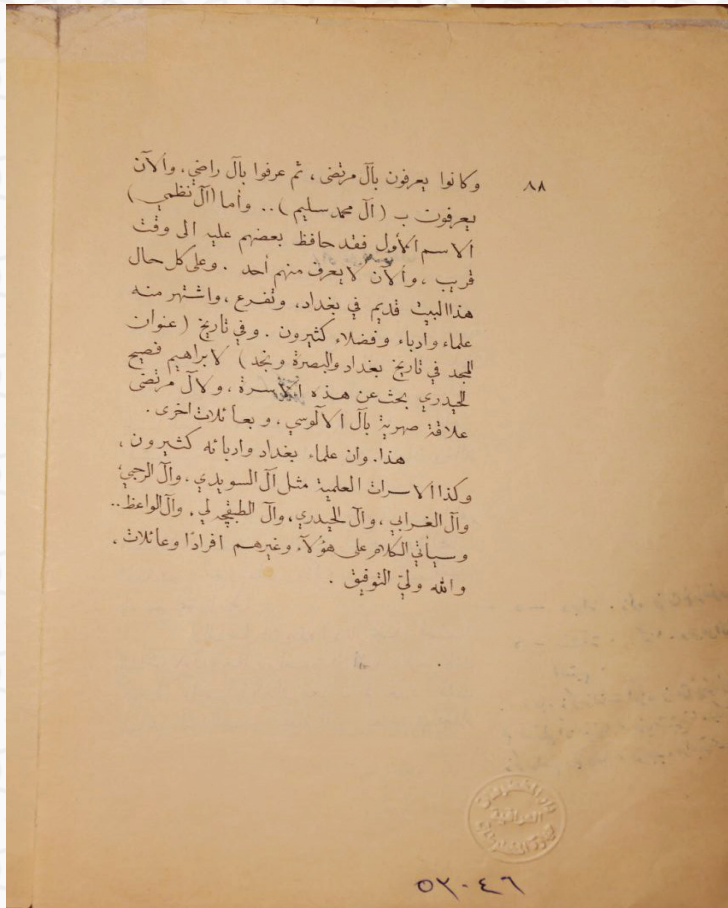 ٨٨
وكانوا يعرفون بآل مرتضى، ثم عرفوا بآل راضي، وألآن
يعرفون ب (آل محمد سليم) .. وأما (آل نظمي)
ألاسم ألأول فقد حافظ بعضهم عليه الى وقت
قريب، وألآن لايعرف منهم أحد. وعلى كل حال
هذا البيت قديم في بغداد، وتفرع، واشتهر منه
علماء وادباء وفضلاء كثيرون. وفي تاريخ (عنوان
المجد في تاريخ بغداد والبصرة ونجد) لابراهيم فصيح
الحيدري بحث عن هذه الأسرة، ولآل مرتضى
علاقة صهرية بآل الآلوسي، وبعائلات اخرى.
هذا. وان علماء بغداد وادبائه كثيرون،
وكذا ألاسرات العلمية مثل آل السويدي، وآل الرحبي،
وآل الغرابي، وآل الحيدري، وآل الطبقچه لي، وآل الواعظ..
وسيأتي الكلام على هؤلآء وغيرهم افرادًا وعائلات.
والله ولي التوفيق.
دار المخطوطات العراقية
٥٢٠٤٦